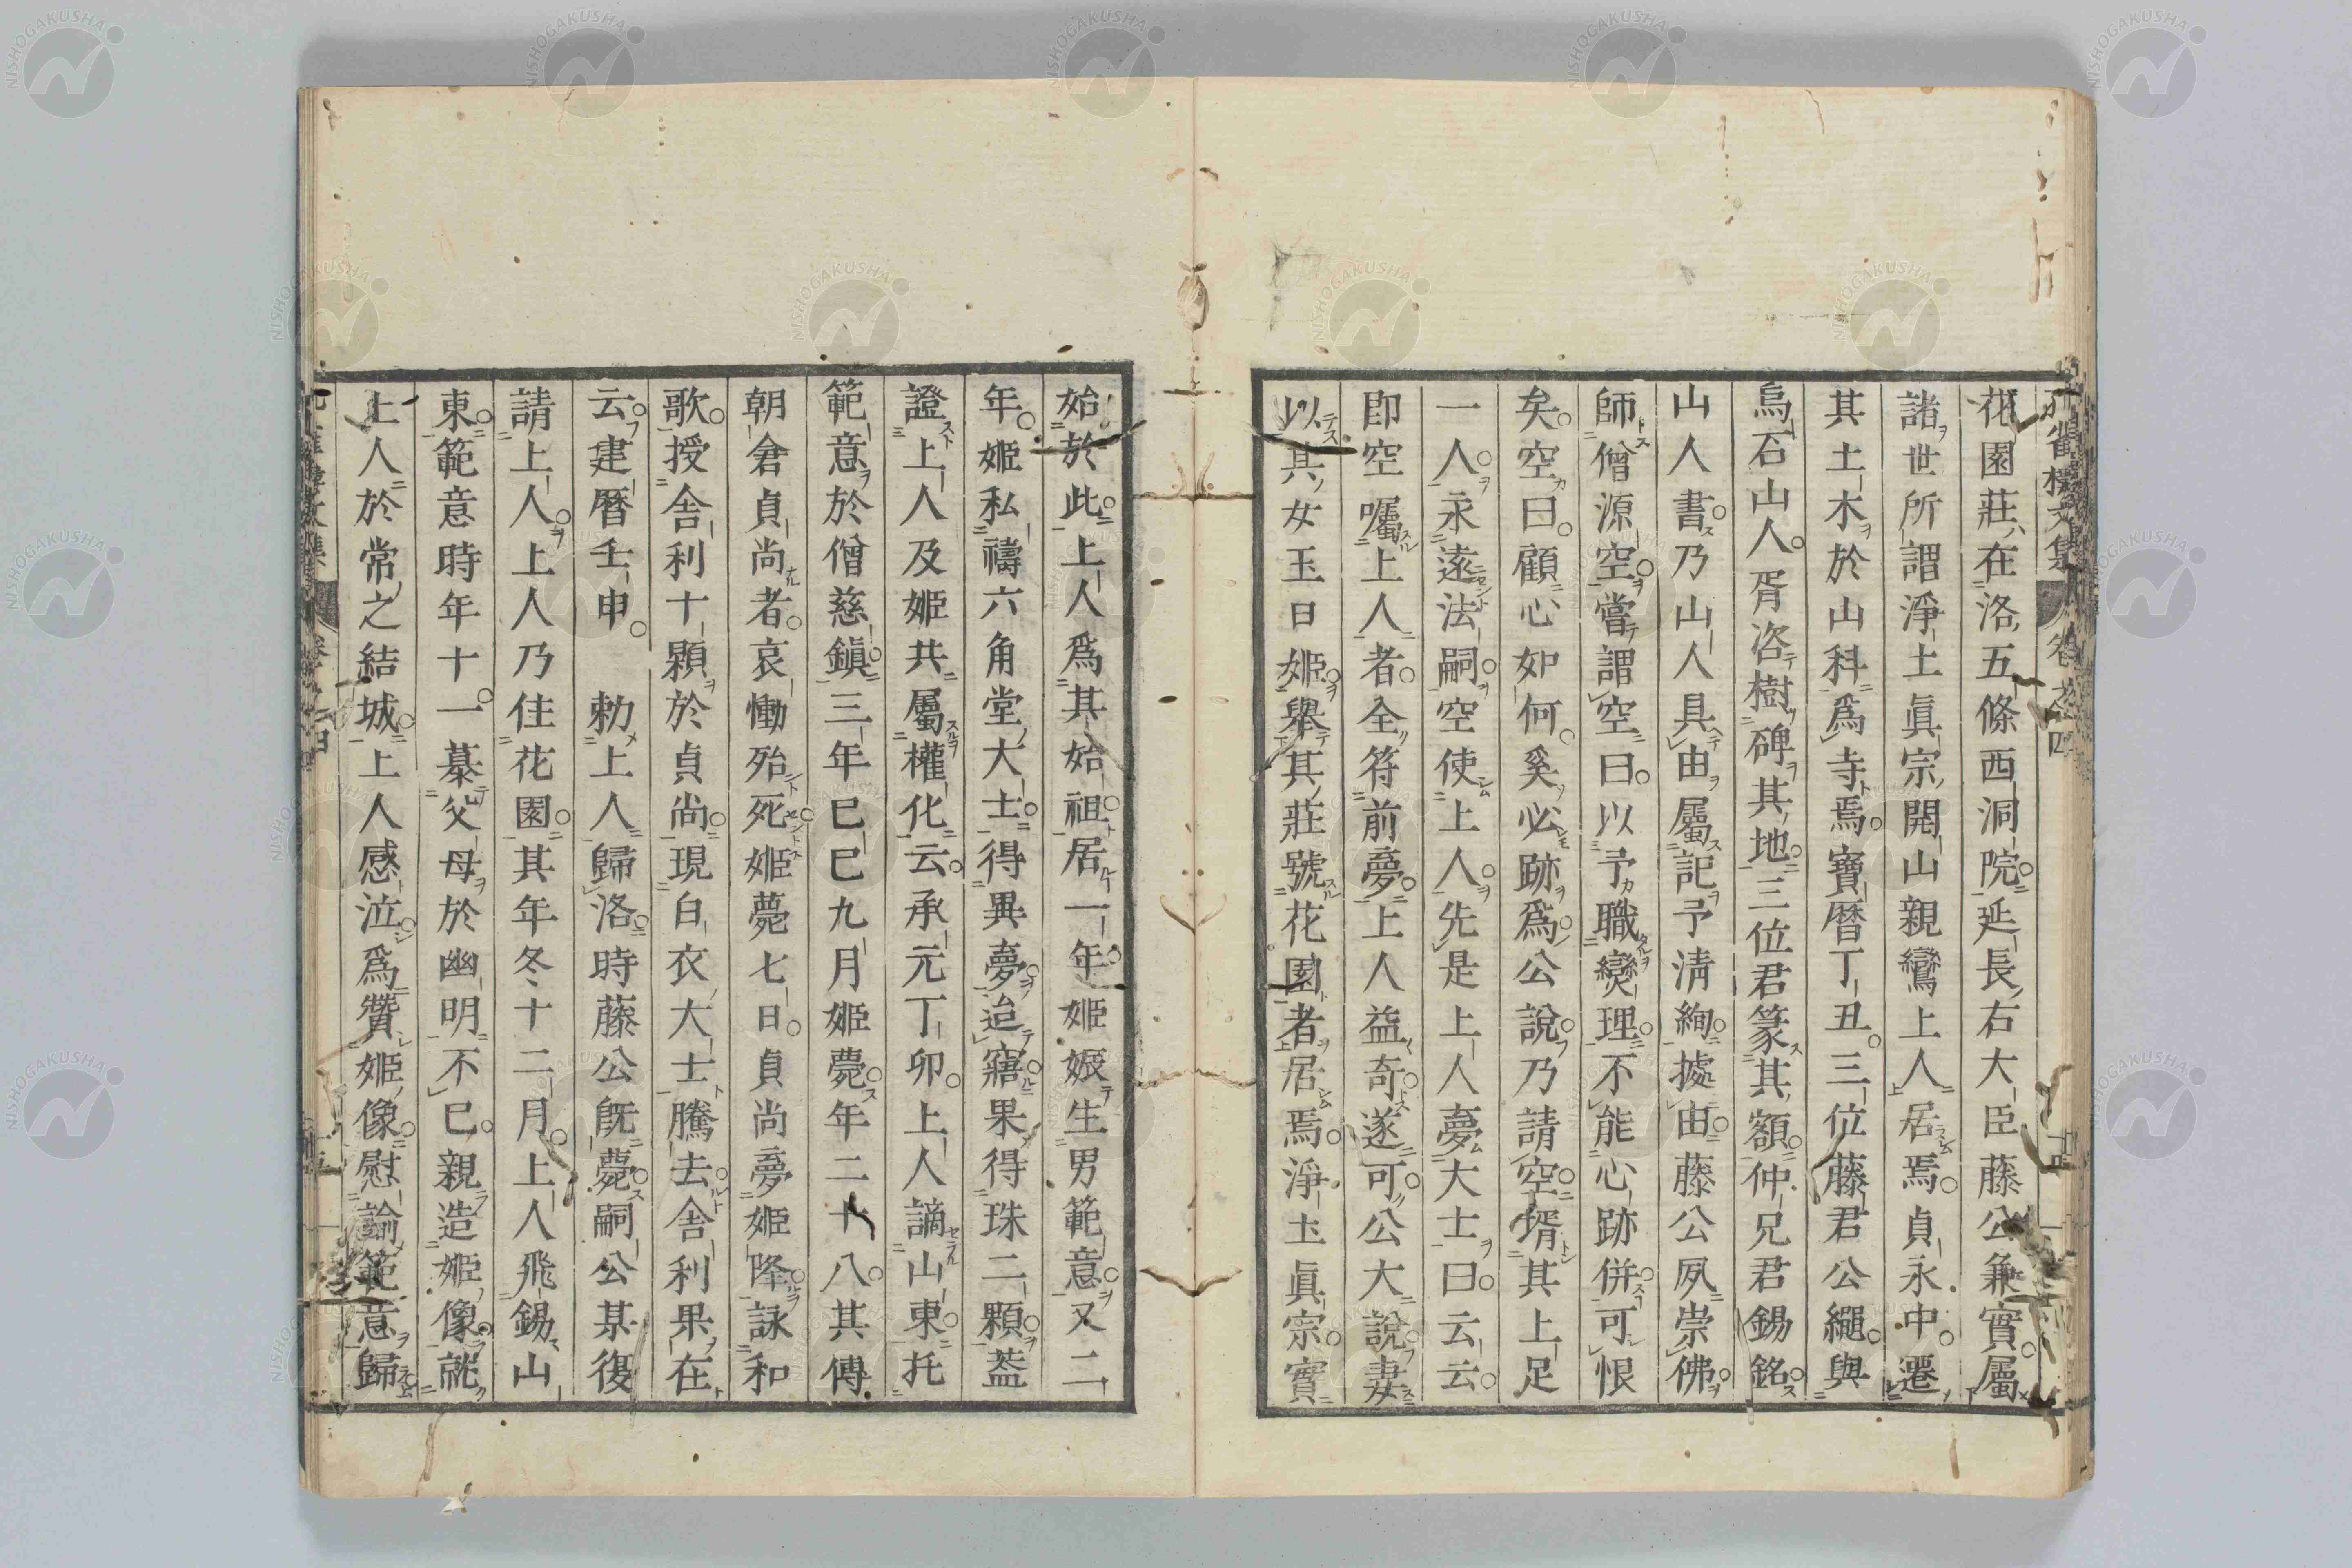 花園莊在洛五條西洞院延長右大臣藤公兼實屬
諸世所謂淨土眞宗開山親鸞上人居焉貞永中遷
其土木於山科爲寺焉寶曆丁丑三位藤君公繩與
烏石山人胥咨樹碑其地三位君篆其額仲兄君錫銘
山人書乃山人具由屬記予淸絢據由藤公夙崇佛
師僧源空嘗謂空曰以予職燮理不能心跡併可恨
矣空曰顧心如何奚必跡爲公說乃請空壻其上足
一人永遠法嗣空使上人先是上人夢大士曰云云
卽空囑上人者全符前夢上人益奇遂可公大說妻
以其女玉日姬舉其莊號花園者居焉淨土眞宗實
始於此上人爲其始祖居一年姬娠生男範意又二
年姬私禱六角堂大士得異夢迨寤果得珠二顆蓋
證上人及姬共屬權化云承元丁卯上人謫山東托
範意於僧慈鎭三年己巳九月姬薨年二十八其傅
朝倉貞尚者哀慟殆死姬薨七日貞尚夢姬降詠和
歌授舎利十顆於貞尚現白衣大士騰去舎利果在
云建曆壬申 勅上人歸洛時藤公旣薨嗣公某復
請上人上人乃住花園其年冬十二月上人飛錫山
東範意時年十一慕父母於幽明不已親造姬像就
上人於常之結城上人感泣爲贊姬像慰諭範意歸